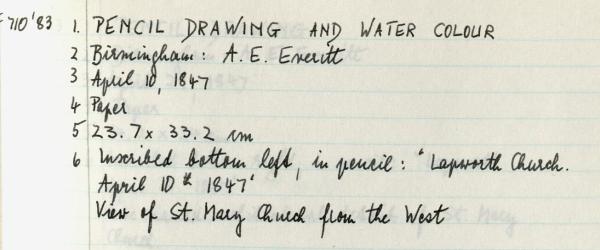 710'83 1. PENCIL DRAWING AND WATER COLOUR
2 Birmingham: A. E. Everitt
3 April 10, 1847
4 Paper
5 23.7 x 33.2 cm
6 Inscribed bottom left, in pencil: "Lapworth Church.
April 10th 1847"
View of St. Mary Church from the West